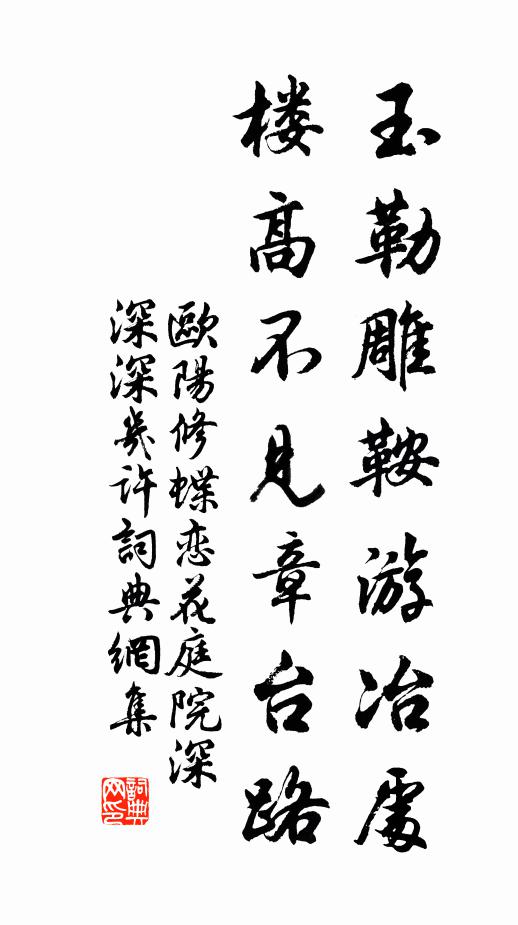 玉勒雕鞍游冶處
楼高不見章台路
歐陽修蝶恋花庭院深
深深幾许詞典網集
詞典